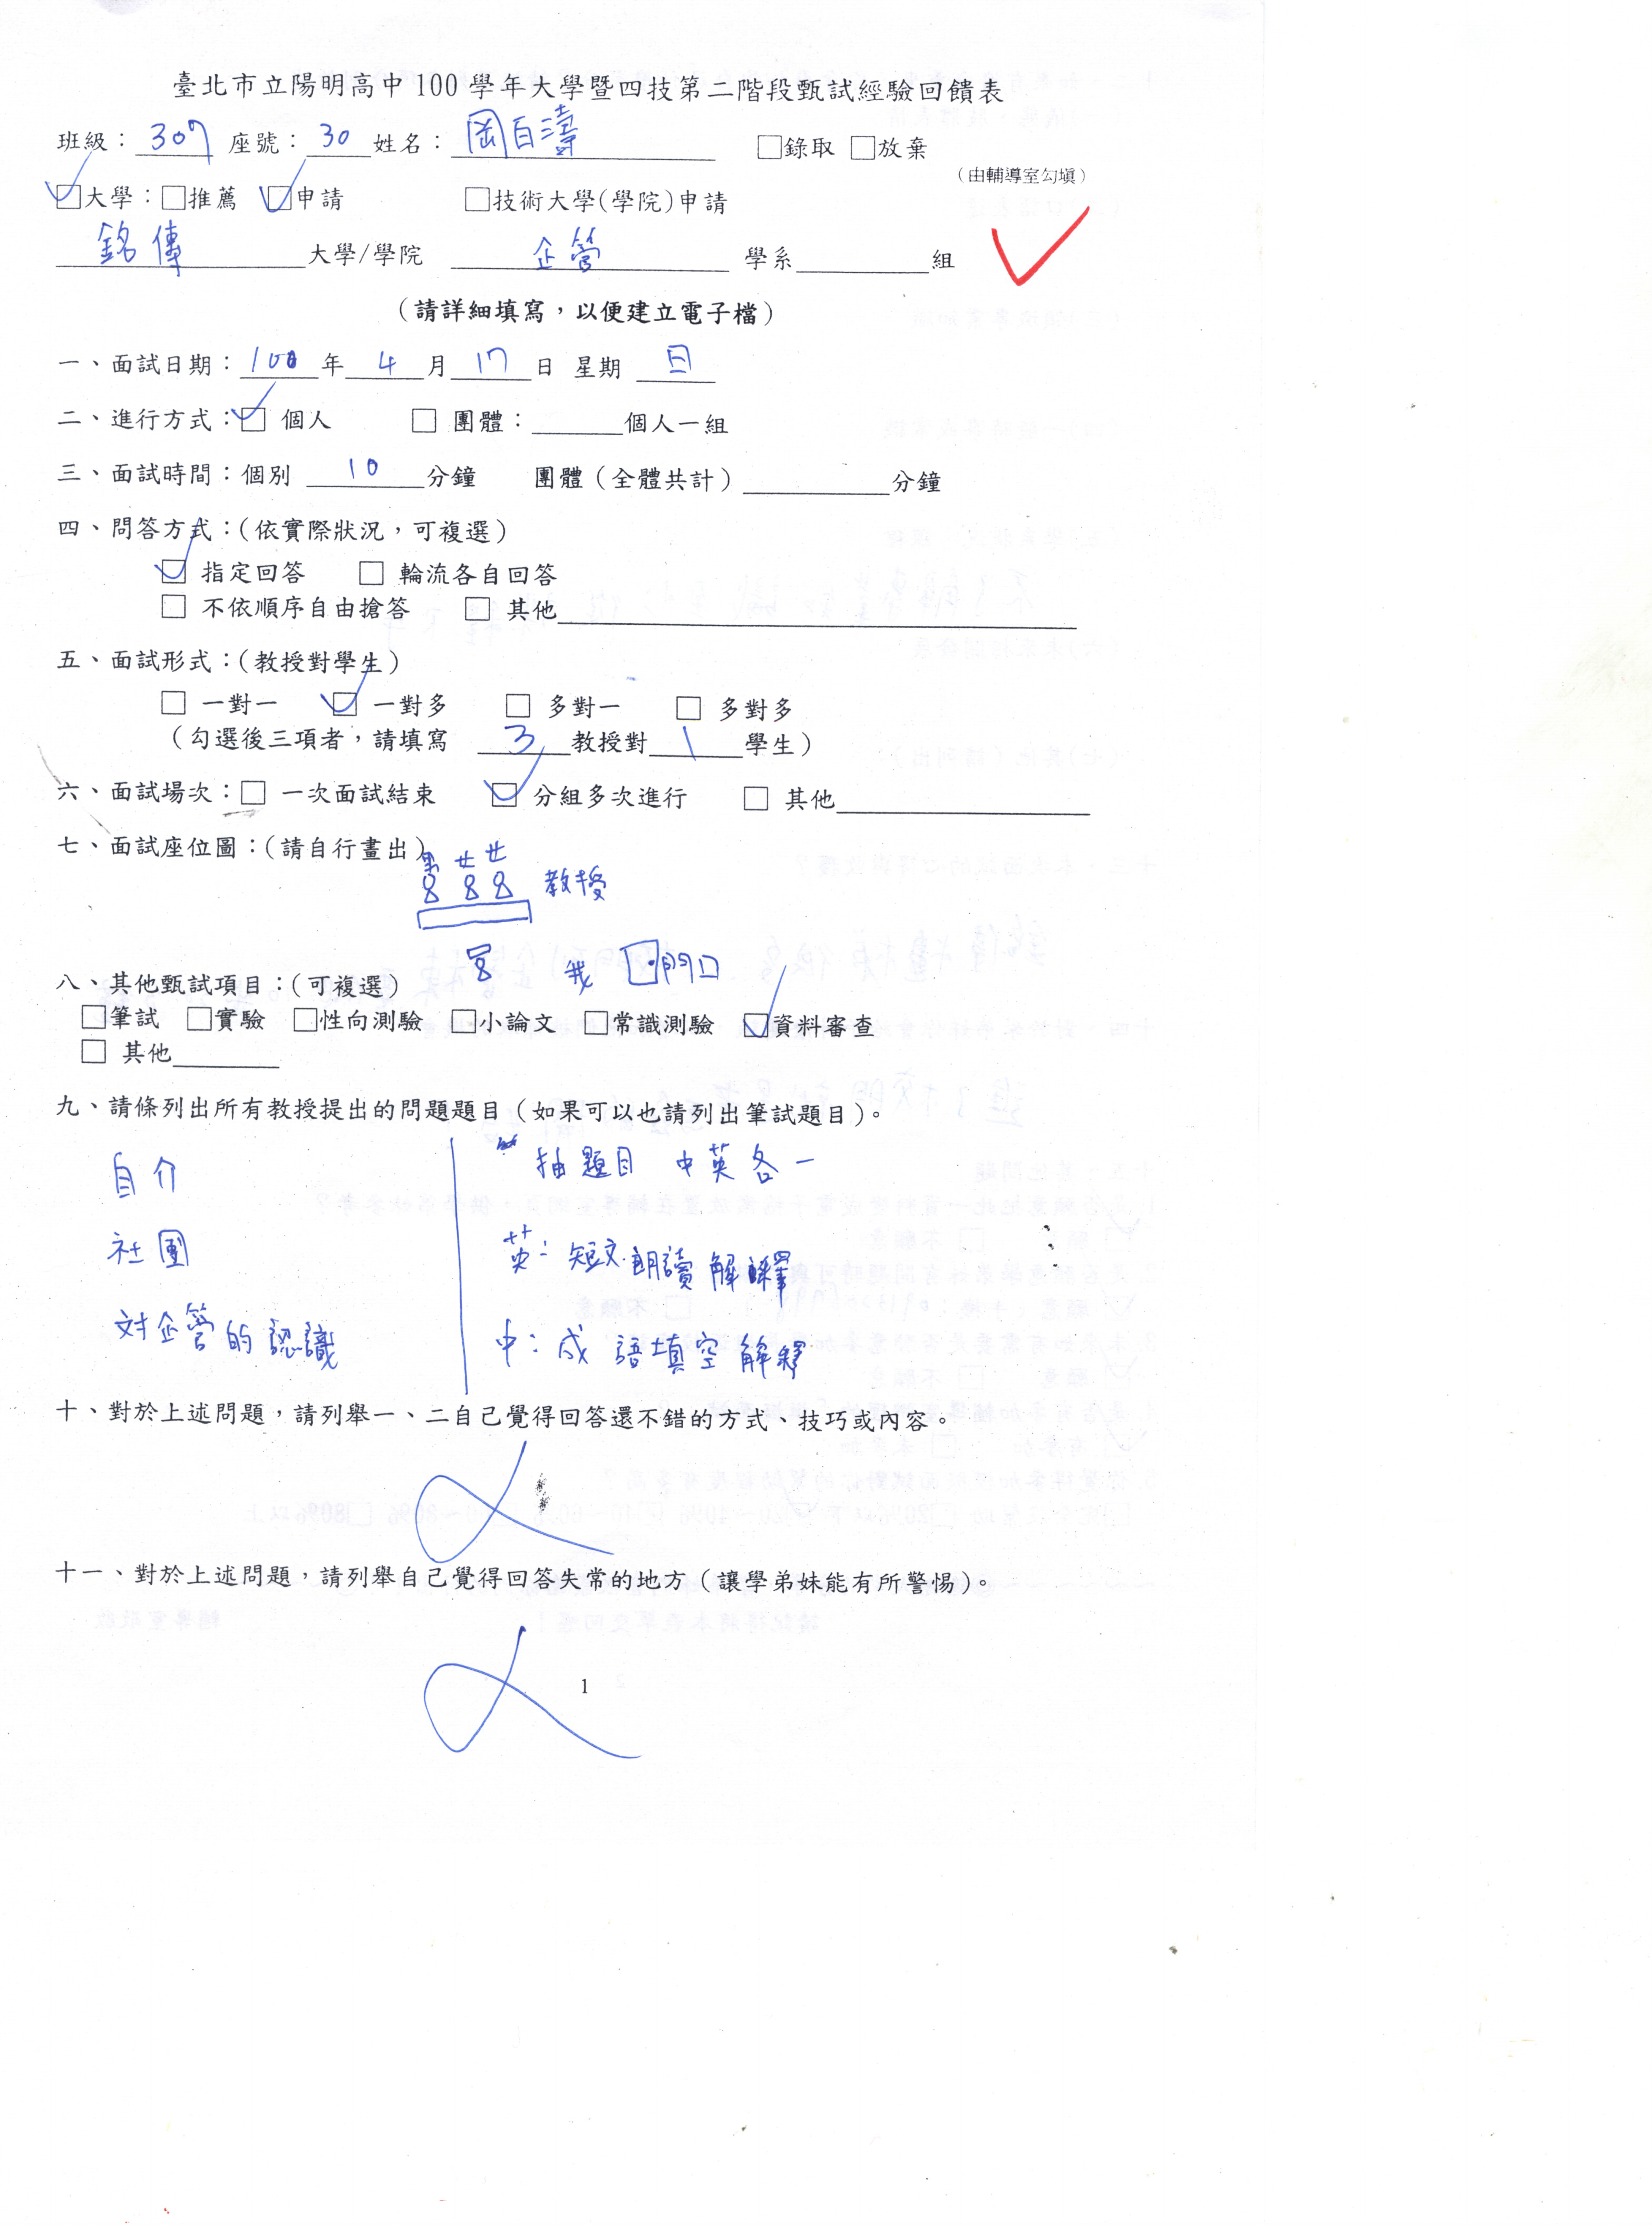 臺北市立陽明高中100學年大學暨四技第二階段甄試經驗回饋表
班級：307 座號：30 姓名：岡百濤 □錄取 □放棄
（由輔導室勾填）
☑大學：□推薦 ☑申請 □技術大學(學院)申請
銘傳大學/學院 企管 學系______組
（請詳細填寫，以便建立電子檔）
一、面試日期：100年4月17日 星期 日
二、進行方式：☑ 個人 □ 團體：______個人一組
三、面試時間：個別 10 分鐘 團體（全體共計）______分鐘
四、問答方式：(依實際狀況，可複選)
☑ 指定回答 □ 輪流各自回答
□ 不依順序自由搶答 □ 其他______
五、面試形式：(教授對學生)
□ 一對一 ☑ 一對多 □ 多對一 □ 多對多
（勾選後三項者，請填寫 3 教授對 1 學生）
六、面試場次：□ 一次面試結束 ☑ 分組多次進行 □ 其他______
七、面試座位圖：(請自行畫出)
教授
我 門口
八、其他甄試項目：(可複選)
□筆試 □實驗 □性向測驗 □小論文 □常識測驗 ☑資料審查
□ 其他______
九、請條列出所有教授提出的問題題目（如果可以也請列出筆試題目）。
自介
社團
对企管的認識
抽題目 中英各一
英：短文朗讀解釋
中：成語填空解釋
十、對於上述問題，請列舉一、二自己覺得回答還不錯的方式、技巧或內容。
十一、對於上述問題，請列舉自己覺得回答失常的地方（讓學弟妹能有所警惕）。
1